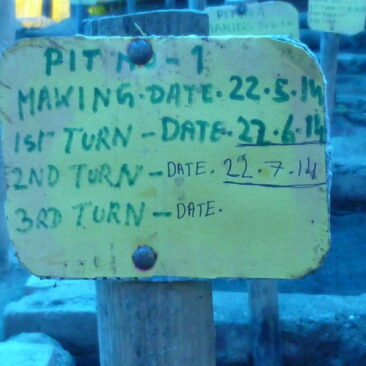 PIT NO - 1
MAKING. DATE. 22.5.14
1ST TURN - DATE. 22.6.14
2ND TURN - DATE. 22.7.14
3RD TURN - DATE.